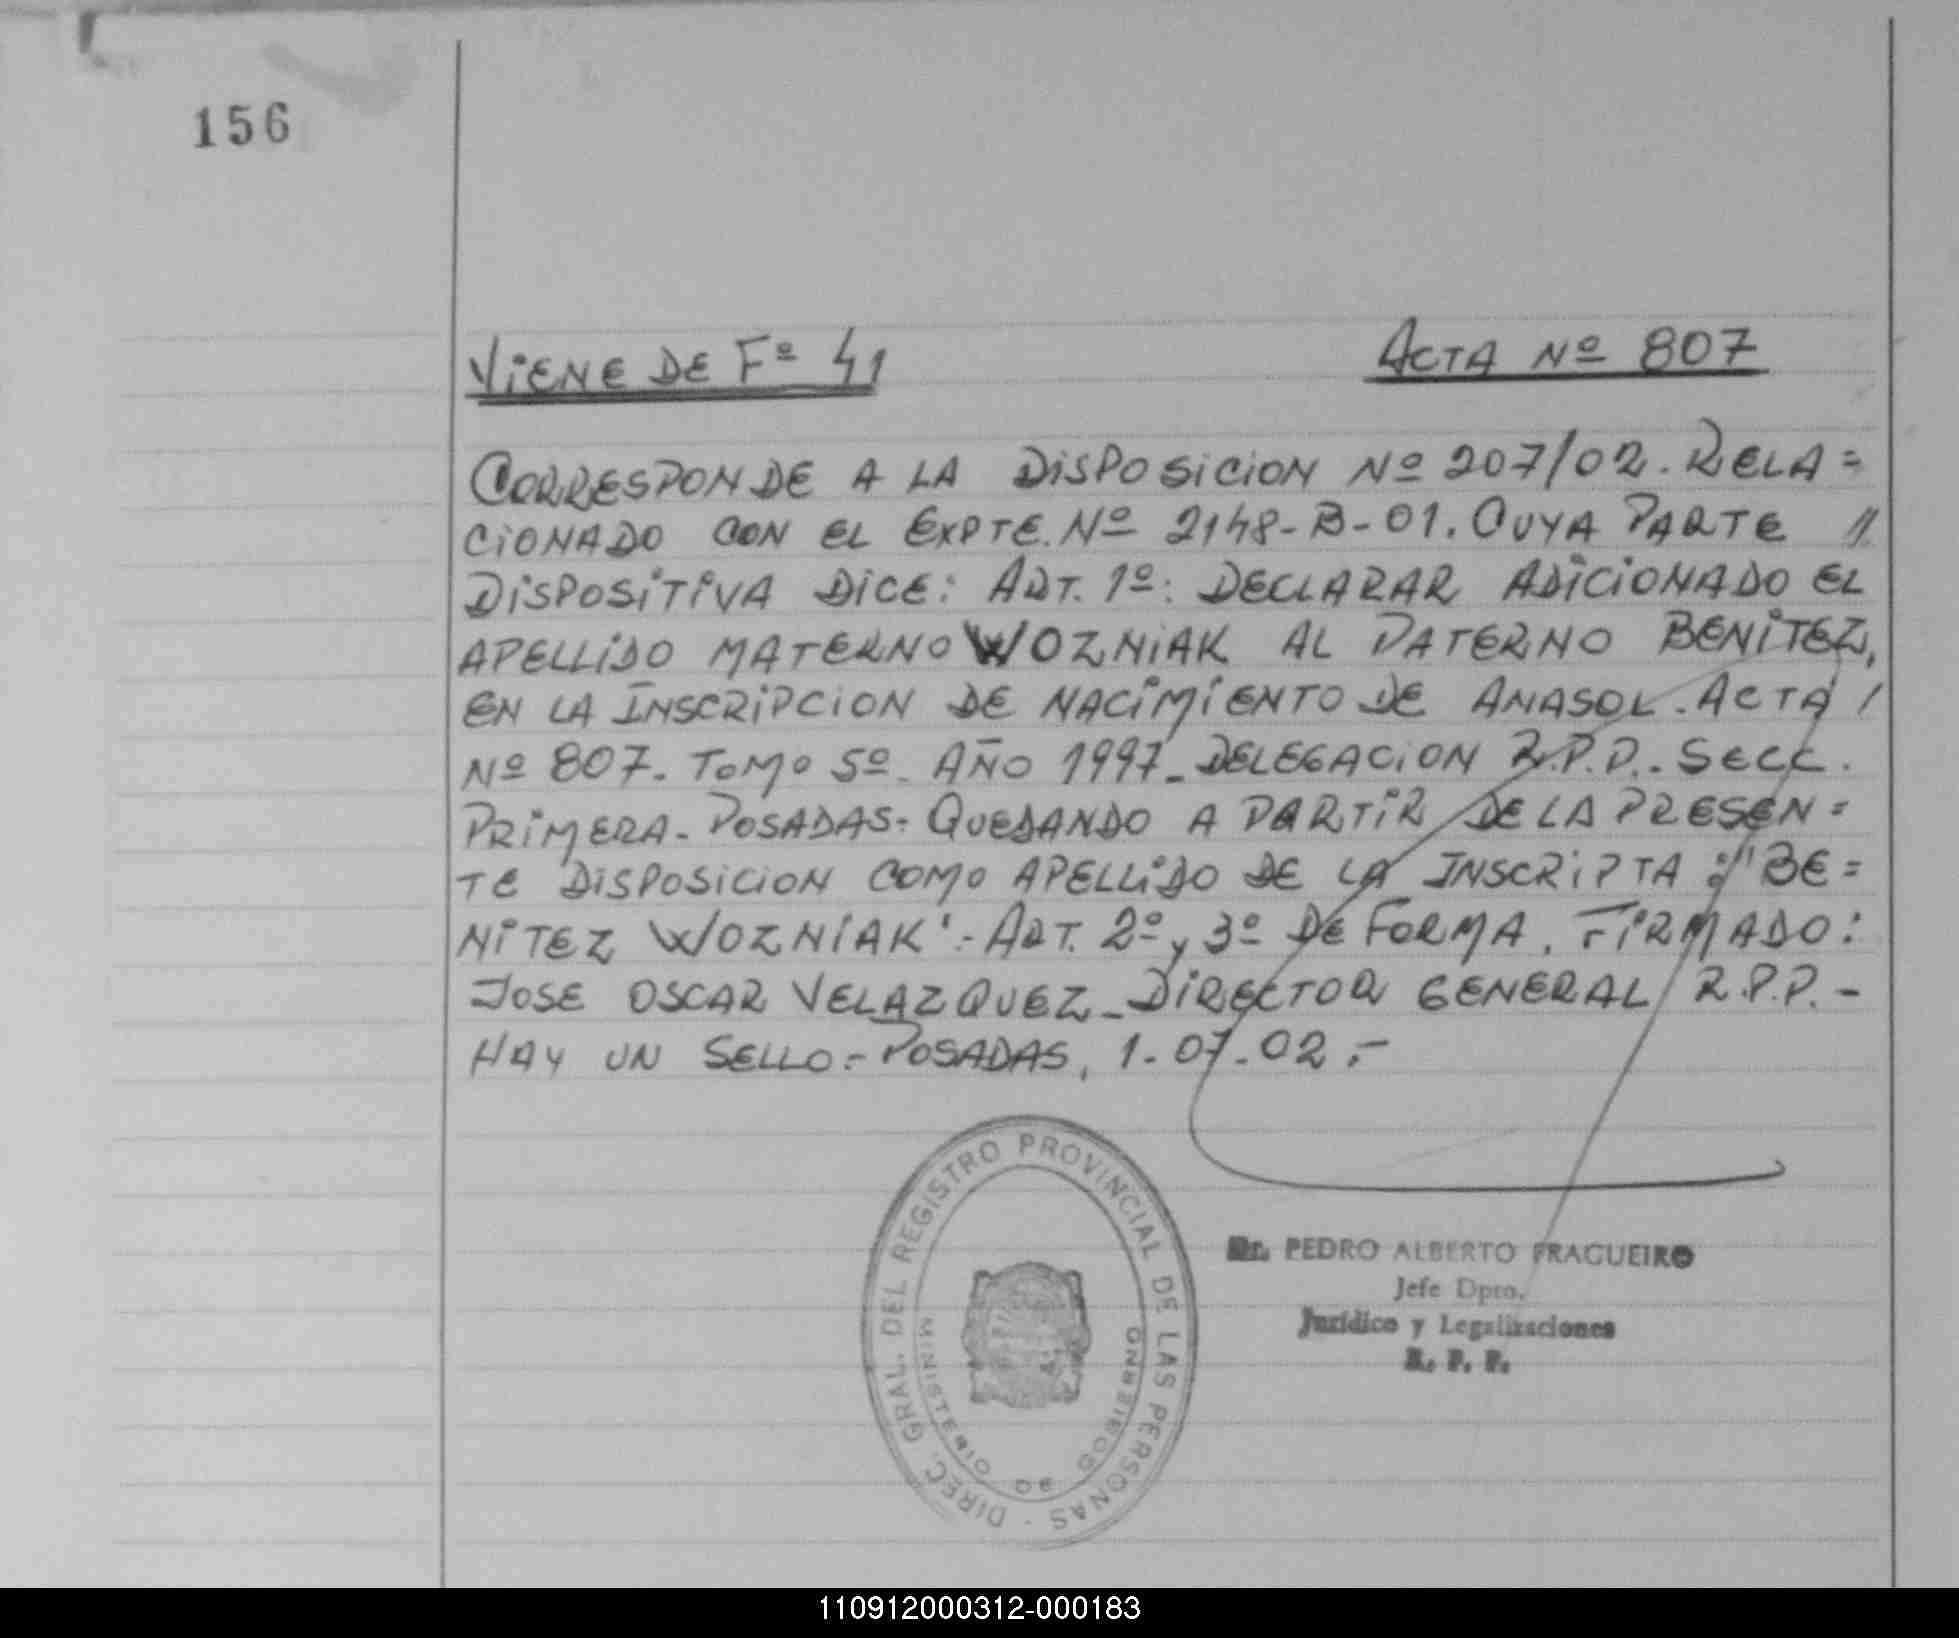 156
VIENE DE Fº 41
ACTA Nº 807
CORRESPONDE A LA DISPOSICION Nº 207/02. RELA=
CIONADO CON EL EXPTE. Nº 2148-B-01. CUYA PARTE //
DISPOSITIVA DICE: ART. 1º: DECLARAR ADICIONADO EL
APELLIDO MATERNO WOZNIAK AL PATERNO BENITEZ,
EN LA INSCRIPCION DE NACIMIENTO DE ANASOL. ACTA /
Nº 807. TOMO 5º. AÑO 1997_ DELEGACION R.P.P.. SECC.
PRIMERA- POSADAS- QUEDANDO A PARTIR DE LA PRESEN=
TE DISPOSICION COMO APELLIDO DE LA INSCRIPTA: "BE=
NITEZ WOZNIAK".- ART. 2º y 3º DE FORMA. FIRMADO:
JOSE OSCAR VELAZQUEZ_ DIRECTOR GENERAL R.P.P.-
HAY UN SELLO.- POSADAS, 1-07-02.-
DIREC. GRAL. DEL REGISTRO PROVINCIAL DE LAS PERSONAS -
MINISTERIO DE GOBIERNO
Dr. PEDRO ALBERTO FRAGUEIRO
Jefe Dpto.
Jurídico y Legalizaciones
R. P. P.
110912000312-000183